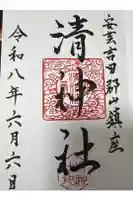 安芸吉田郡山鎮座
清神社
令和八年六月六日